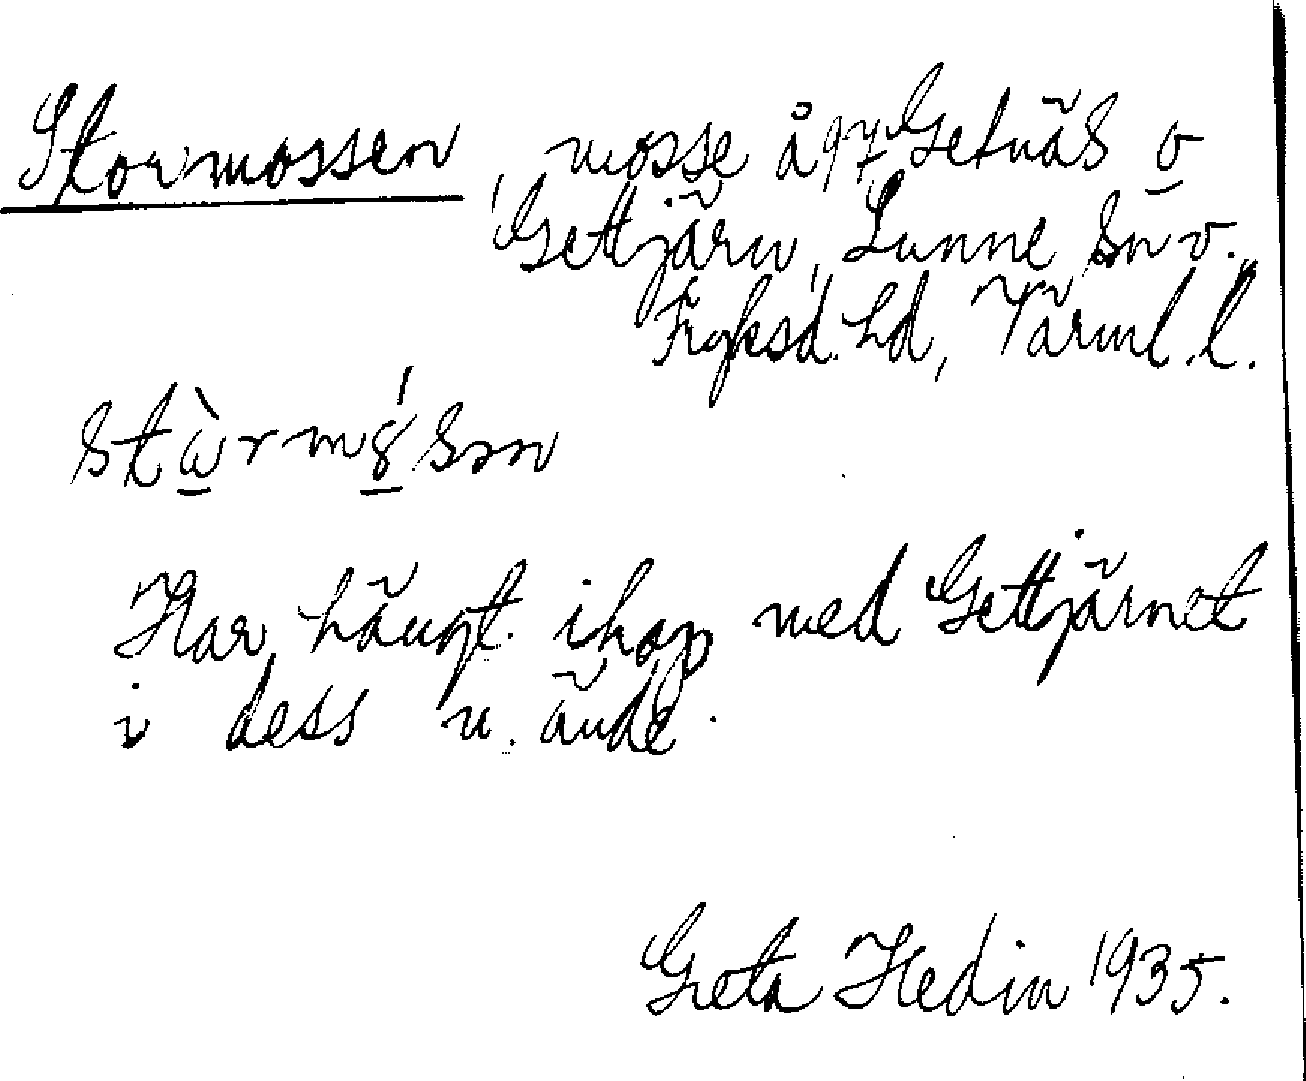 Stormossen, mosse å 97 Getnäs o
Gettjärn, Sunne sn v.
Fryksd. hd, Värml. l.
stὼrmɞ́sən
Har hängt ihop med Gettjärnet
i dess n. ände.
Greta Hedin 1935.